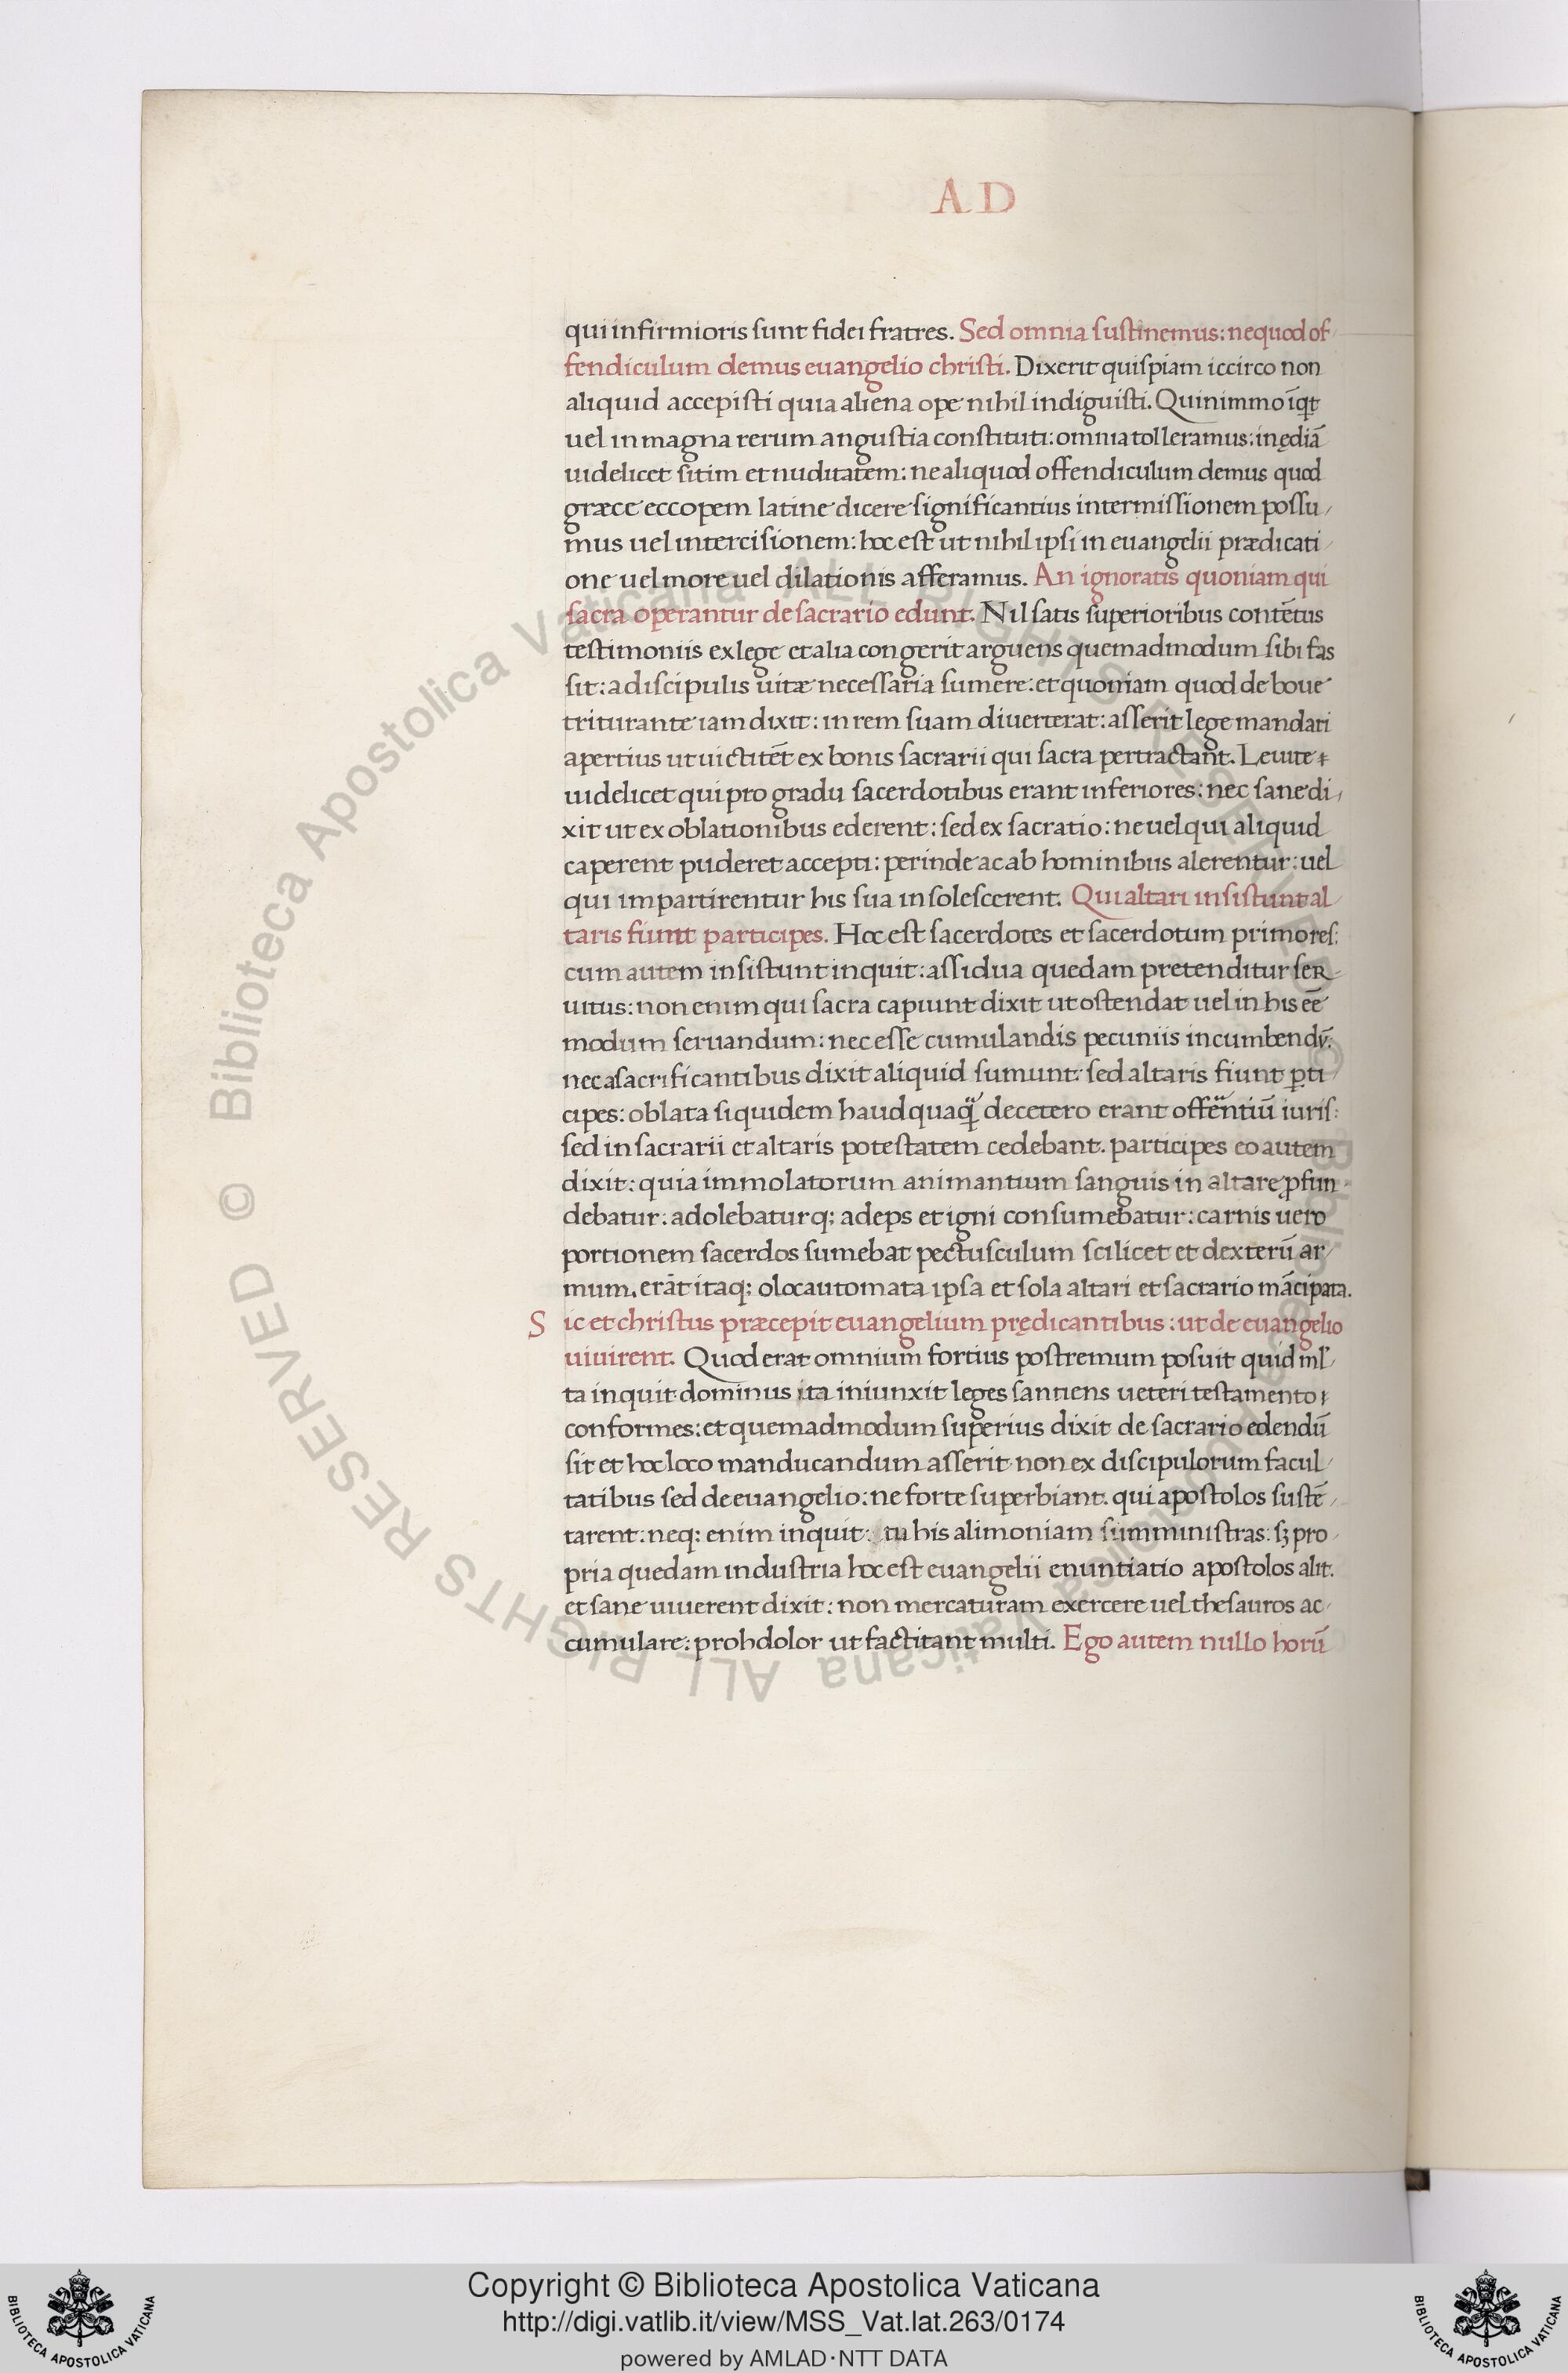 AD
qui infirmioris sunt fidei fratres. Sed omnia sustinemus: nequod of
fendiculum demus euangelio christi. Dixerit quispiam iccirco non
aliquid accepisti quia aliena ope nihil indiguisti. Quinimmo īqt
uel in magna rerum angustia constituti: omnia tolleramus: inędiā
uidelicet sitim et nuditatem: ne aliquod offendiculum demus quod
græce eccopem latine dicere significantius intermissionem possu,
mus uel intercisionem: hoc est ut nihil ipsi in euangelii prædicati
one uel more uel dilationis afferamus. An ignoratis quoniam qui
sacra operantur de sacrario edunt. Nil satis superioribus contētus
testimoniis ex lege et alia congerit arguens quemadmodum sibi fas
sit: a discipulis uitæ necessaria sumere: et quoniam quod de boue
triturante iam dixit: in rem suam diuerterat: asserit lege mandari
apertius ut uictitēt ex bonis sacrarii qui sacra pertractant. Leuite
uidelicet qui pro gradu sacerdotibus erant inferiores: nec sane di,
xit ut ex oblationibus ederent: sed ex sacratio: ne uel qui aliquid
caperent puderet accepti: perinde ac ab hominibus alerentur: uel
qui impartirentur his sua insolescerent. Qui altari insistunt al
taris fiunt participes. Hoc est sacerdotes et sacerdotum primores:
cum autem insistunt inquit: assidua quedam pretenditur ser
uitus: non enim qui sacra capiunt dixit ut ostendat uel in his eē
modum seruandum: nec esse cumulandis pecuniis incumbendū:
nec a sacrificantibus dixit aliquid sumunt: sed altaris fiunt ꝑti
cipes: oblata siquidem haudquaq̄ decetero erant offerentiū iuris:
sed in sacrarii et altaris potestatem cedebant. participes eo autem
dixit: quia immolatorum animantium sanguis in altare ꝓfun
debatur: adolebaturq; adeps et igni consumebatur: carnis uero
portionem sacerdos sumebat pectusculum scilicet et dexterū ar
mum. erāt itaq; olocautomata ipsa et sola altari et sacrario mācipata.
Sic et christus præcepit euangelium prędicantibus: ut de euangelio
uiuirent. Quod erat omnium fortius postremum posuit quid ml'
ta inquit dominus ita iniunxit leges santiens ueteri testamento
conformes: et quemadmodum superius dixit de sacrario edendū
sit et hoc loco manducandum asserit non ex discipulorum facul
tatibus sed de euangelio: ne forte superbiant. qui apostolos sustē
tarent: neq; enim inquit: tu his alimoniam sumministras: sȝ pro
pria quedam industria hoc est euangelii enuntiatio apostolos alit.
et sane uiuerent dixit: non mercaturam exercere uel thesauros ac
cumulare: prohdolor ut factitant multi. Ego autem nullo horū
© Biblioteca Apostolica Vaticana ALL RIGHTS RESERVED © Biblioteca Apostolica Vaticana ALL RIGHTS RESERVED
Copyright © Biblioteca Apostolica Vaticana
http://digi.vatlib.it/view/MSS_Vat.lat.263/0174
powered by AMLAD·NTT DATA
BIBLIOTECA APOSTOLICA VATICANA
BIBLIOTECA APOSTOLICA VATICANA